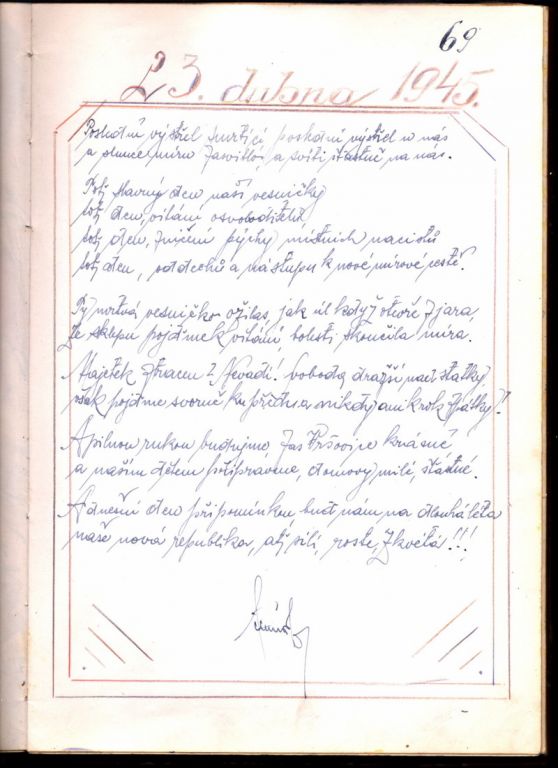 69
23. dubna 1945.
Poslední výstřel smrtící, poslední výstřel u nás
a slunce míru zasvitlo, a svítí šťastně na nás.
Totiž slavný den naší vesničky
toť den, vítání osvoboditelů
toť den, zničení pýchy místních nacistů
toť den, oddechů a nástupu k nové mírové cestě.
Ty mrtvá vesničko ožilas, jak úl když otevře z jara,
Ze sklepu pojďme k vítání, bolesti skončila míra.
Majetek ztracen? Nevadí! Svoboda dražší nad statky,
však pojďme svorně ku předu a nikdy ani krok zpátky!!
A pilnou rukou budujme, zas Pršovice krásné
a našim dětem připravme, domovy milé, šťastné.
A dnešní den připomínkou buď nám na dlouhá léta
naše nová republika, ať sílí, roste, zkvétá!!!